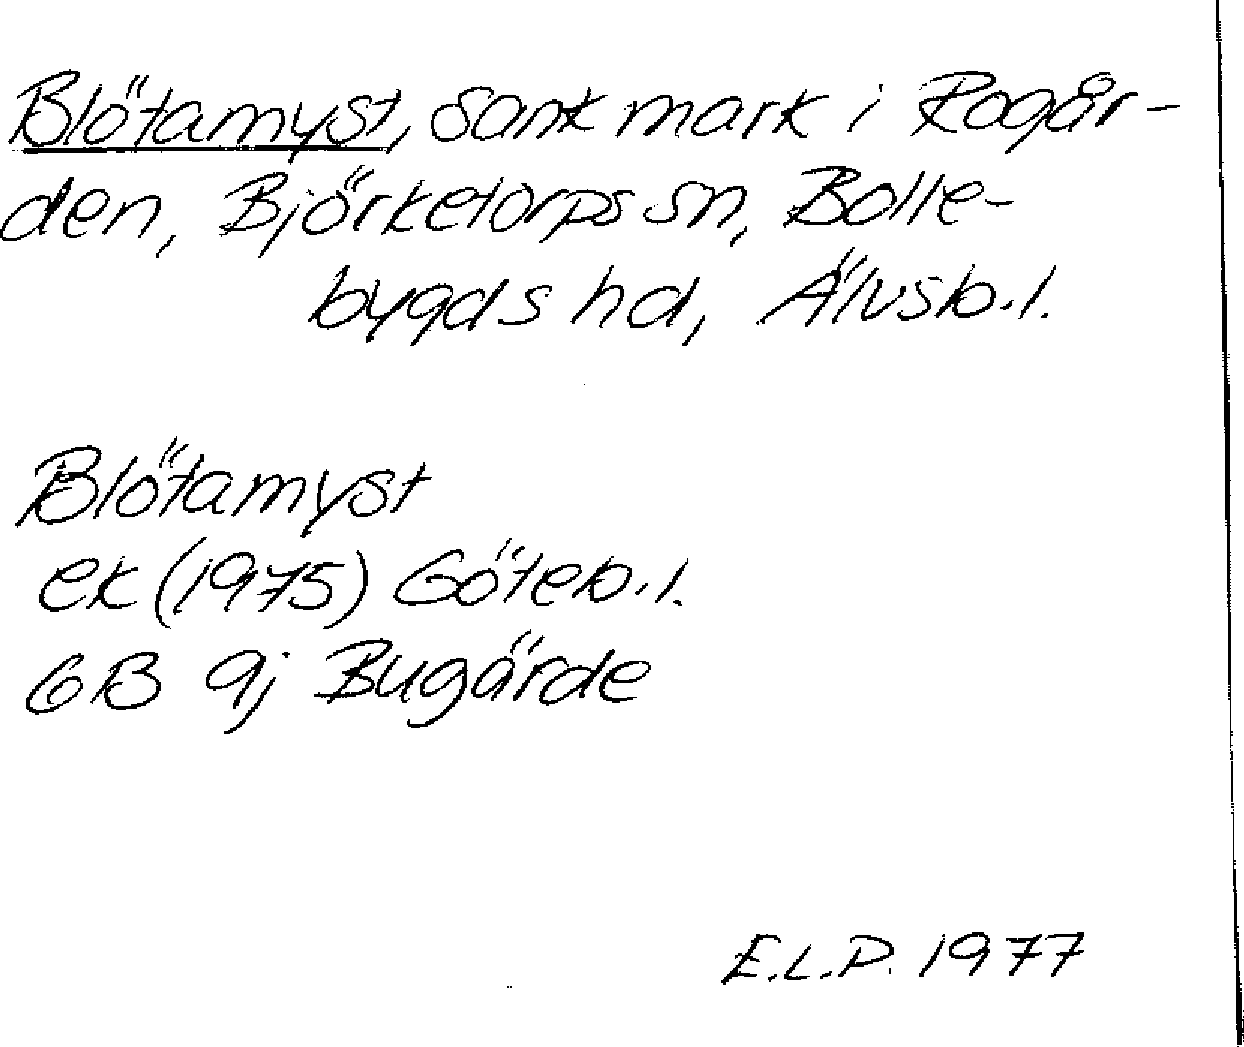 Blötamyst, Sank mark i Rogår-
den, Björketorps sn, Bolle-
bygds hd, Älvsb.l.
Blötamyst
ek (1975) Göteb.l.
GB 9j Bugärde
E.L.P. 1977